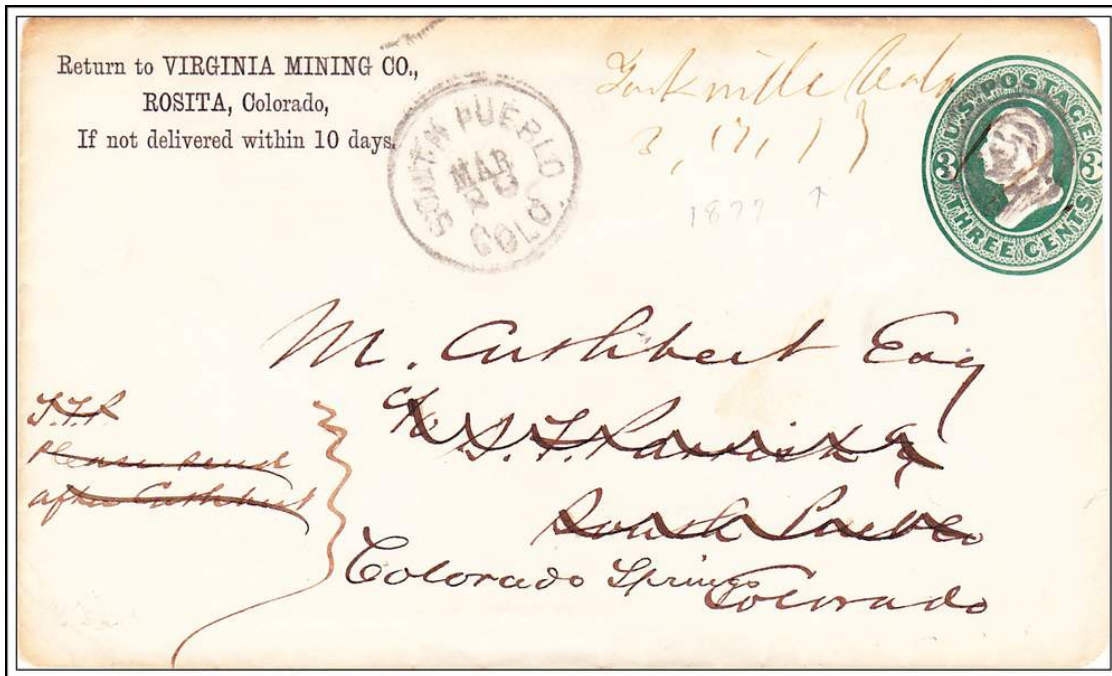 Return to VIRGINIA MINING CO.,
ROSITA, Colorado,
If not delivered within 10 days.
SOUTH PUEBLO
MAR
COLO.
Yorkville Colo
3, 17, 17
1877
U.S. POSTAGE
3 3
THREE CENTS
M. Cuthbert Esq
c/o T. F. Parrish Esq
South Pueblo
Colorado Springs
Colorado
T.F.P.
Please send
after Cuthbert